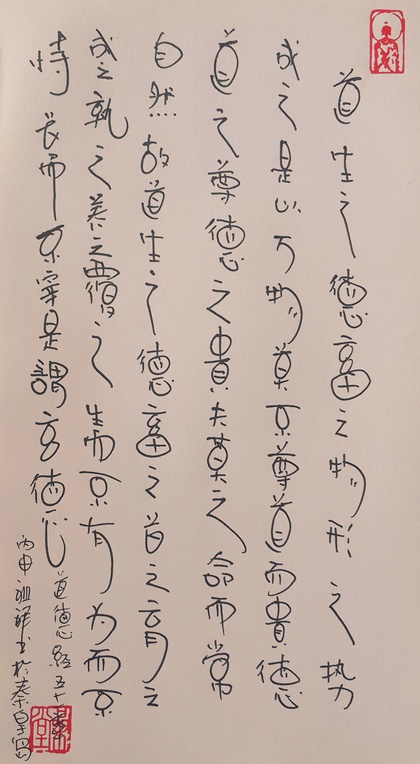 道生之德畜之物形之势
成之是以万物莫不尊道而貴德
道之尊德之貴夫莫之命而常
自然故道生之德畜之首之育之
成之孰之养之覆之生而不有为而不
恃长而不宰是謂玄德
道德经五十一章
丙申书於秦皇岛